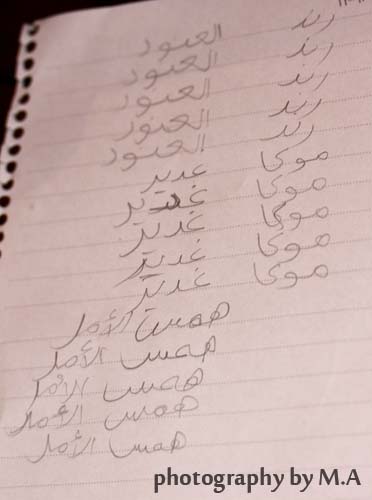 رند العنود
رند العنود
رند العنود
رند العنود
رند العنود
موكا غدير
موكا غدير
موكا غدير
موكا غدير
موكا غدير
همس الأمل
همس الأمل
همس الأمل
همس الأمل
همس الأمل
photography by M.A